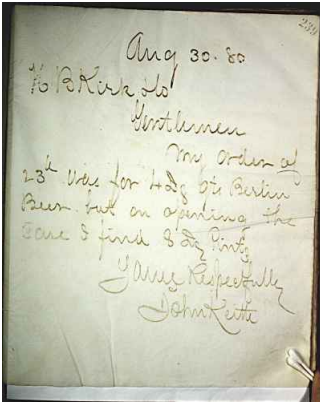 239
Aug 30. 80
H B Kirk & Co
Gentlemen
My order of
23d was for 4 dz qts Berlin
Beer but on opening the
Case I find 8 dz Pints
Yours Respectfully
John Keith